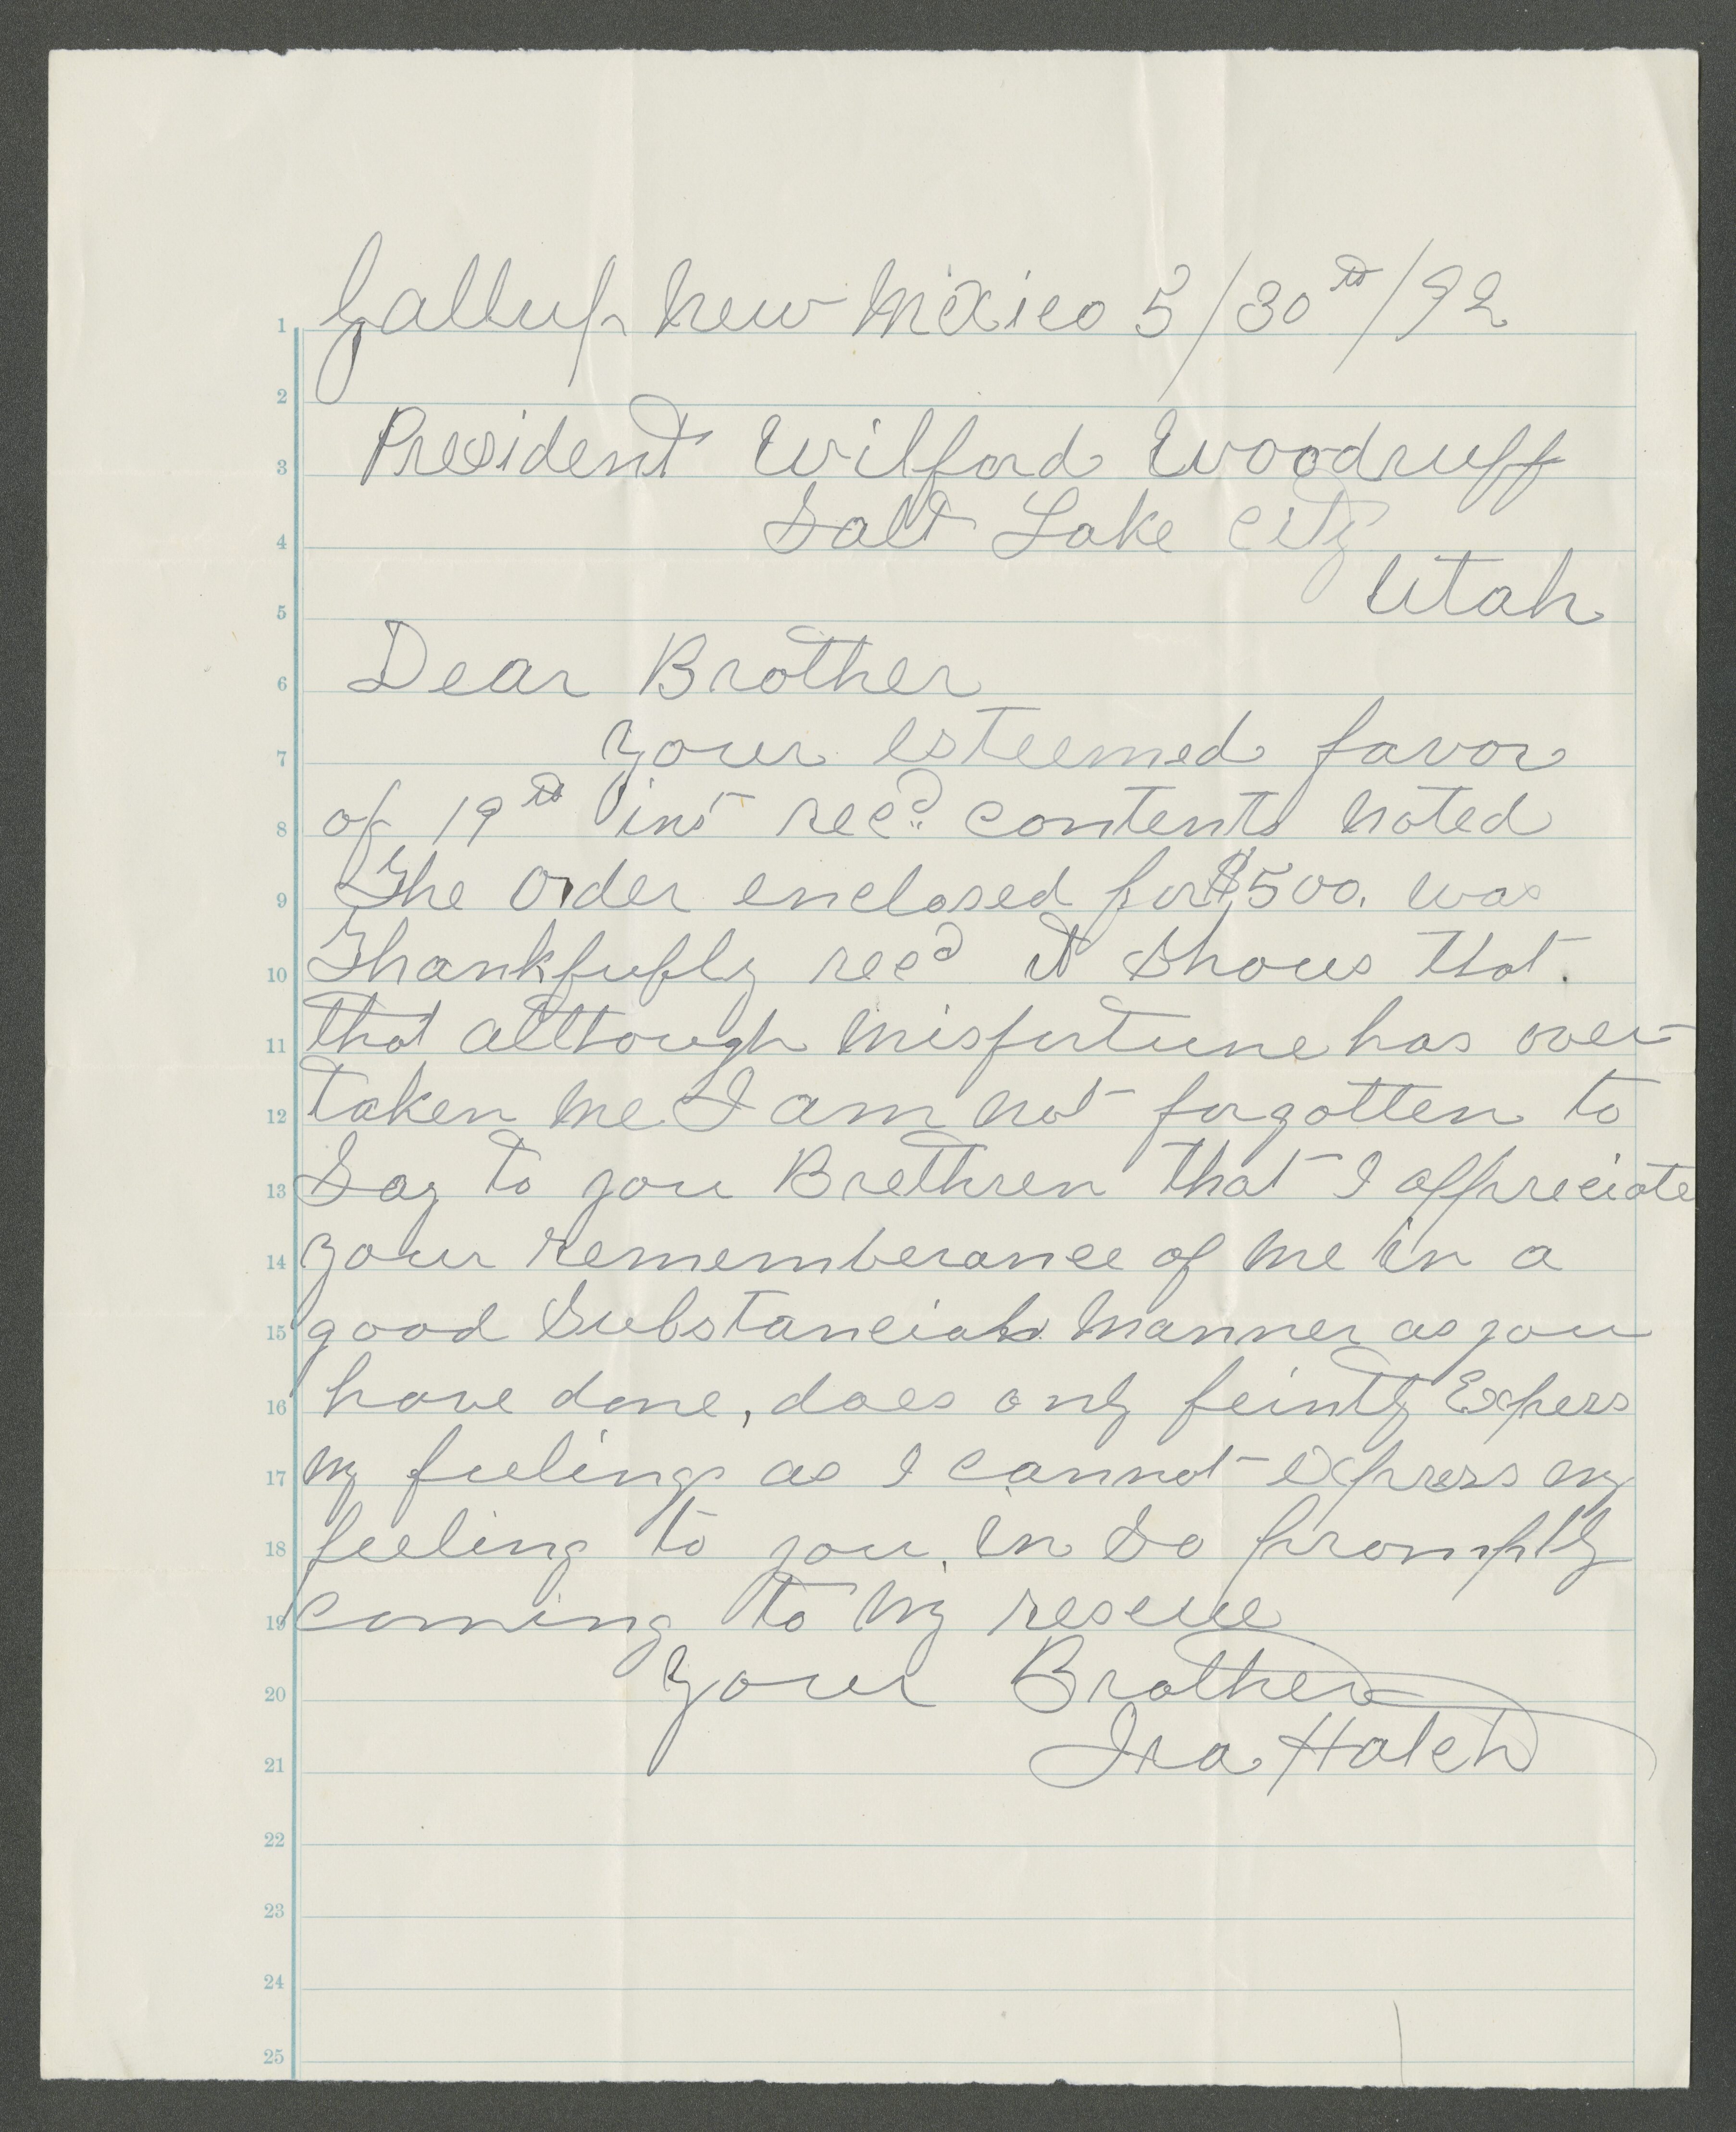 Gallup New Mexico 5/30th/92
1
2
President Wilford Woodruff
3
Salt Lake City
4
Utah
5
Dear Brother
6
your esteemed favor
7
of 19th inst recd contents noted
8
The Order enclosed for $500. was
9
Thankfully recd it shows that
10
that although misfortune has over
11
taken me I am not forgotten to
12
Say to you Brethren that I appreciate
13
your rememberance of me in a
14
good Substancial manner as you
15
have done, does only feintly Expers
16
my feelings as I cannot express my
17
feeling to you. in So promptly
18
coming to my rescue
19
your Brother
20
Ira Hatch
21
22
23
24
25